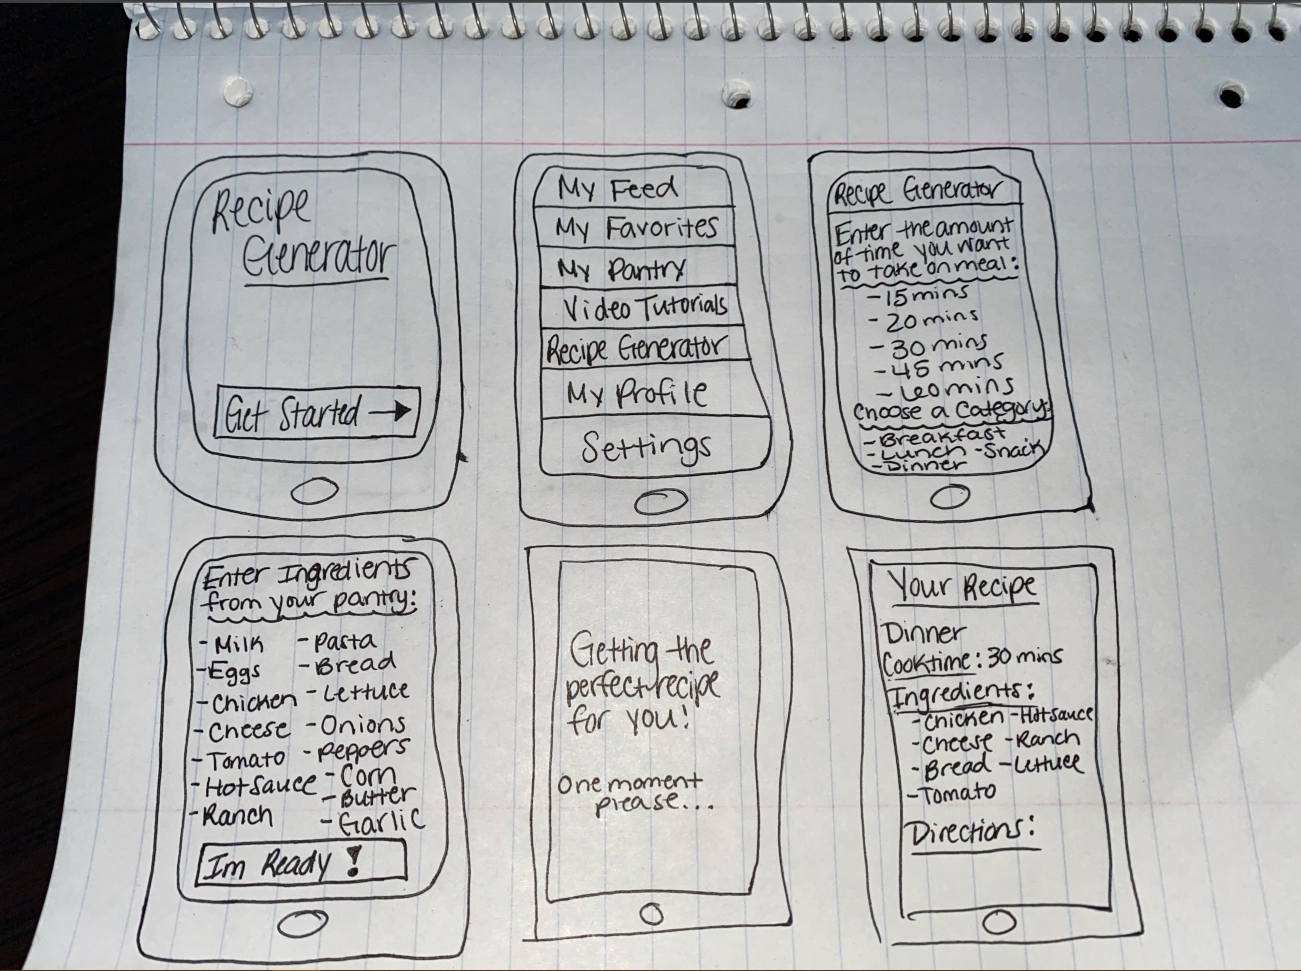 Recipe
Generator
Get Started →
My Feed
My Favorites
My Pantry
Video Tutorials
Recipe Generator
My Profile
Settings
Recipe Generator
Enter the amount
of time you want
to take on meal:
- 15 mins
- 20 mins
- 30 mins
- 45 mins
- 60 mins
Choose a Category:
- Breakfast
- Lunch - Snack
- Dinner
Enter Ingredients
from your pantry:
- Milk - Pasta
- Eggs - Bread
- Chicken - Lettuce
- Cheese - Onions
- Tomato - Peppers
- Hot Sauce - Corn
- Butter
- Ranch - Garlic
Im Ready!
Getting the
perfect recipe
for you!
One moment
please...
Your Recipe
Dinner
Cooktime: 30 mins
Ingredients:
- Chicken - Hot sauce
- Cheese - Ranch
- Bread - Lettuce
- Tomato
Directions: